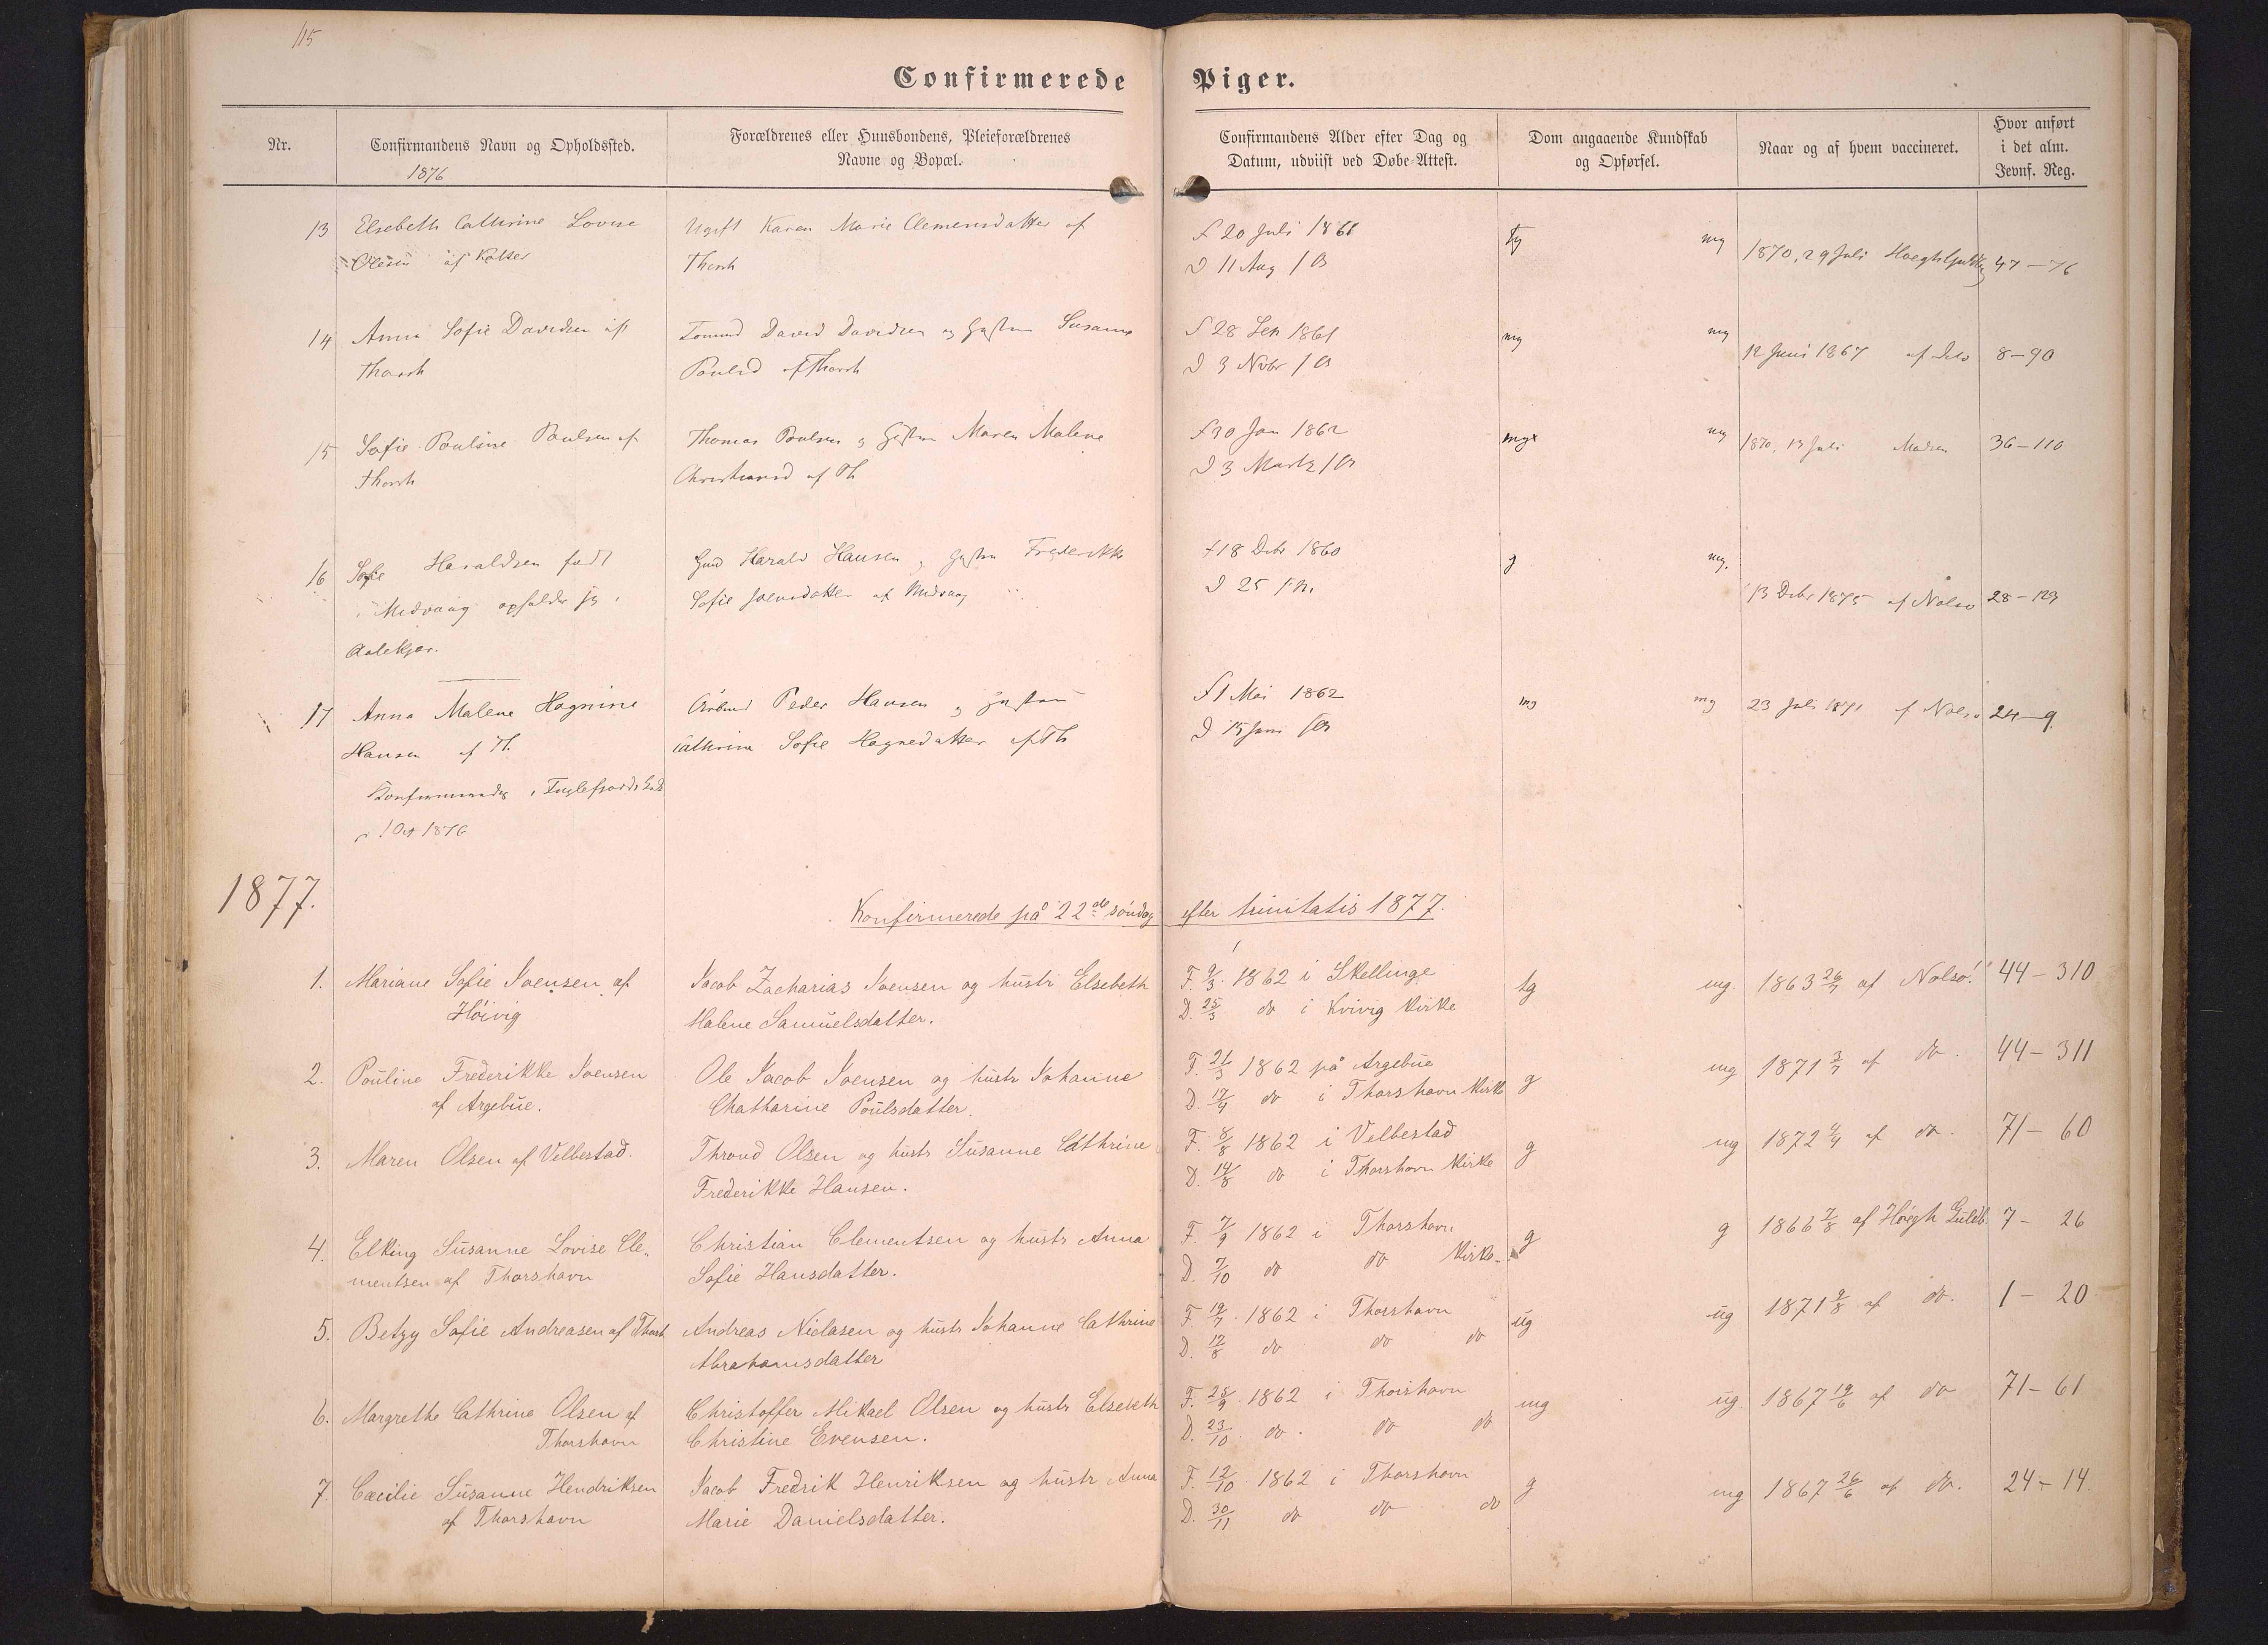 115
Confirmerede Piger.
Nr.
Confirmandens Navn og Opholdssted.
1876
Forældrenes eller Huusbondens, Pleieforældrenes
Navne og Bopæl.
Confirmandens Alder efter Dag og
Datum, udviist ved Døbe-Attest.
Dom angaaende Kundskab
og Opførsel.
Naar og af hvem vaccineret.
Hvor anført
i det alm.
Jevnf. Reg.
13 Elsebeth Cathrine Lovise
Olesen af Kolter
Ugift Karen Marie Clemensdatter af
Thorsh
F 20 Juli 1861
D 11 Aug
tg
mg
1870, 29 Juli
47-76
14 Anna Sofie Davidsen af
Thorsh
David Davidsen og Susanne
Poulsd af Thorsh
F 28 Sep 1861
D 3 Novbr
mg
mg
12 Juni 1867 af
8-90
15 Sofie Pouline Poulsen af
Thorsh
Thomas Poulsen og Maren Malene
af Th
F 30 Jan 1862
D 3 Marts
mgx
mg
1870, 13 Juli Madsen
36-110
16 Sofie Haraldsen født
i Midvaag opholder sig i
Harald Hansen og Frederikke
Sofie af Midvaag
F 18 Debr 1860
D 25
g
mg.
13 Debr 1875 af Nolsø
28-123
17 Anna Malene Hognine
Hansen af Th.
i Fuglefjords
1 Oct 1876
Peder Hansen og
Cathrine Sofie Hognedatter af Th
F 1 Mai 1862
D 15 Juni
mg
mg
23 Juli 1871 af Nolsø
24-9
1877.
Konfirmerede på 22de søndag efter trinitatis 1877.
1. Mariane Sofie Joensen af
Høivig
Jacob Zacharias Joensen og hustr Elsebeth
Malene Samuelsdatter.
F. 9/3 1862 i Skellinge
D. 25/3 do i Kvivig Kirke
tg
mg.
1863 26/7 af Nolsø.
44-310
2. Pouline Frederikke Joensen
af Argebue.
Ole Jacob Joensen og hustr Johanne
Chatharine Poulsdatter.
F. 21/3 1862 på Argebue
D. 17/4 do i Thorshavn Kirke
g
mg
1871 3/7 af do.
44-311
3. Maren Olsen af Velbestad.
Thrond Olsen og hustr Susanne Cathrine
Frederikke Hansen.
F. 8/8 1862 i Velbestad
D. 14/8 do i Thorshavn Kirke
g
mg
1872 4/7 af do.
71-60
4. Elking Susanne Lovise Cle-
mentsen af Thorshavn
Christian Clementsen og hustr Anna
Sofie Hansdatter.
F. 7/9 1862 i Thorshavn
D. 7/10 do do Kirke.
g
g
1866 7/8 af Høegh Guldb.
7-26
5. Betzy Sofie Andreasen af Thorsh
Andreas Niclasen og hustr Johanne Cathrine
Abrahamsdatter
F. 19/7 1862 i Thorshavn
D. 12/8 do do do
ug
ug
1871 9/8 af do.
1-20
6. Margrethe Cathrine Olsen af
Thorshavn
Christoffer Mikael Olsen og hustr Elsebeth
Christine Evensen.
F. 25/9 1862 i Thorshavn
D. 23/10 do. do do
mg
ug.
1867 19/6 af do
71-61
7. Cæcilie Susanne Hendriksen
af Thorshavn
Jacob Fredrik Henriksen og hustr Anna
Marie Danielsdatter.
F. 12/10 1862 i Thorshavn
D. 30/11 do do do
g
mg
1867 26/6 af do.
24-14.